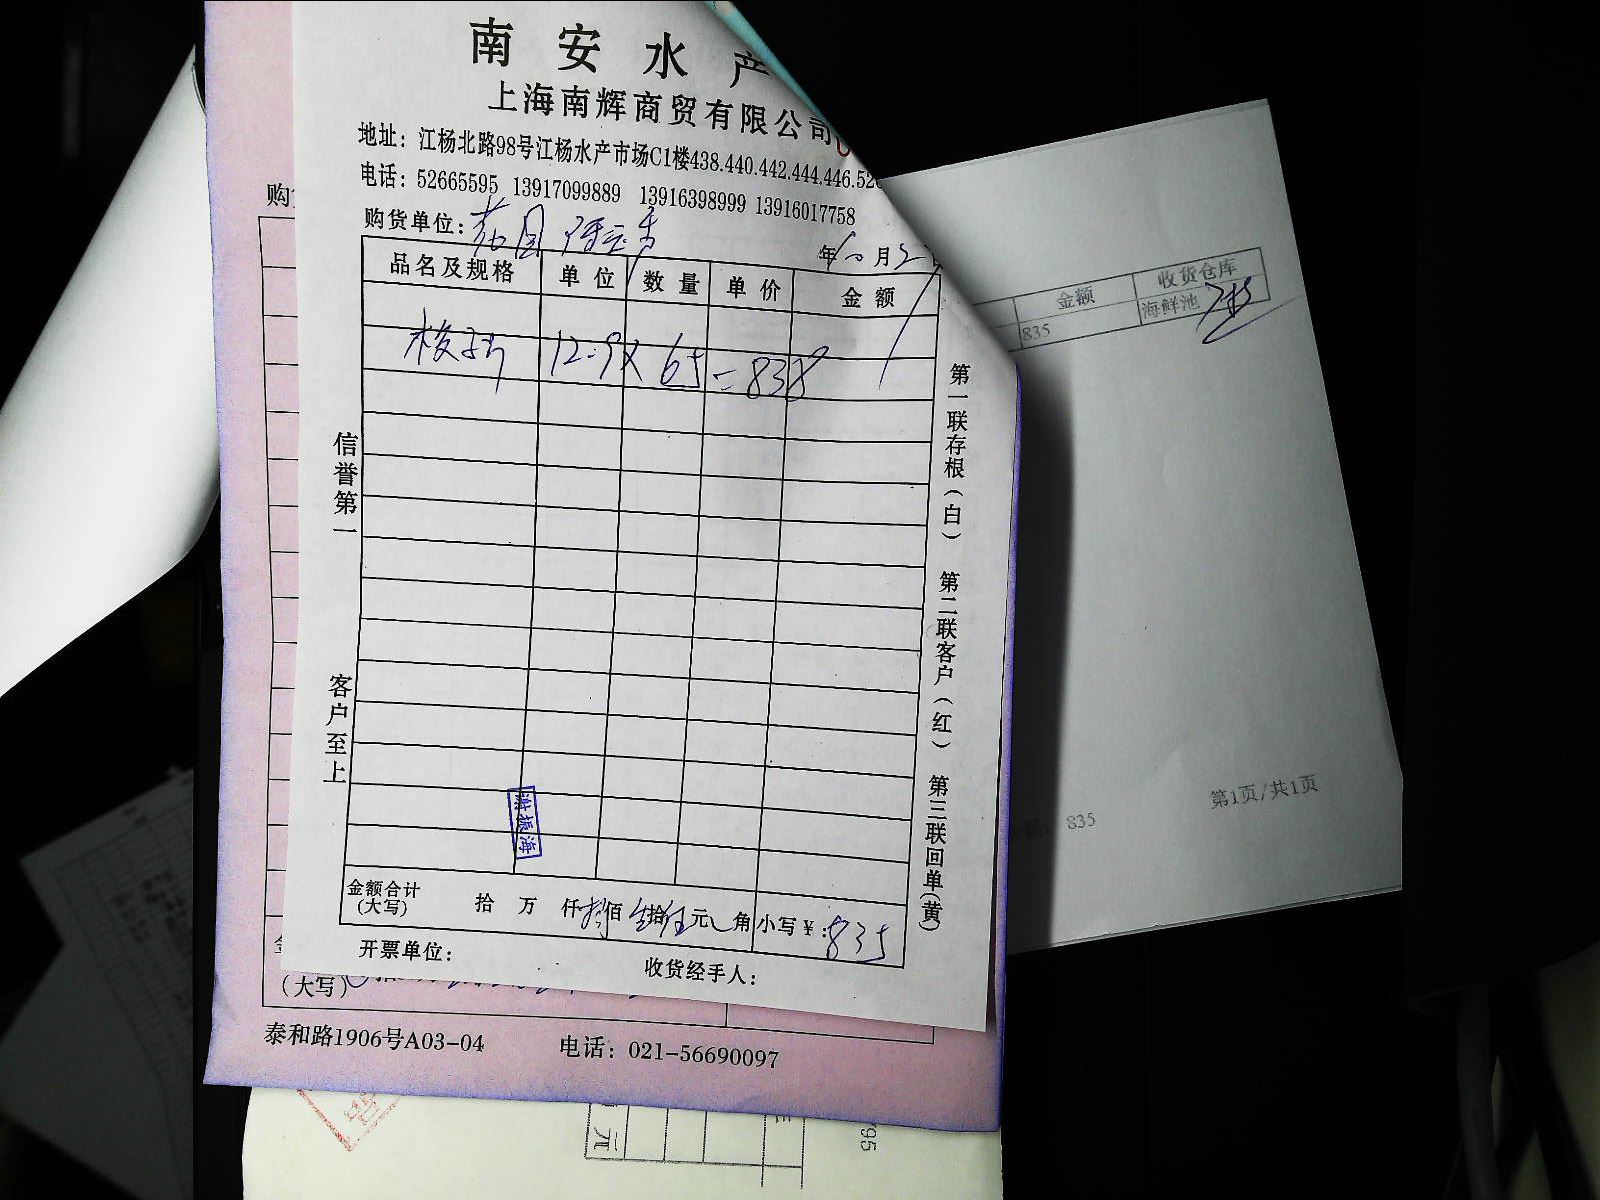 南安水产
上海南辉商贸有限公司
地址：江杨北路98号江杨水产市场C1楼438.440.442.444.446.52
电话：52665595 13917099889 13916398999 13916017758
购货单位：
年 月
品名及规格 单位 数量 单价 金额
梭子 12.9 X 65 = 838
信誉第一
客户至上
第一联存根（白） 第二联客户（红） 第三联回单（黄）
谢振海
金额合计（大写） 拾 万 仟 佰 拾 元 角 小写￥：835
开票单位： 收货经手人：
购
（大写）
泰和路1906号A03-04 电话：021-56690097
金额 收货仓库
835 海鲜池
835
第1页/共1页
元
795